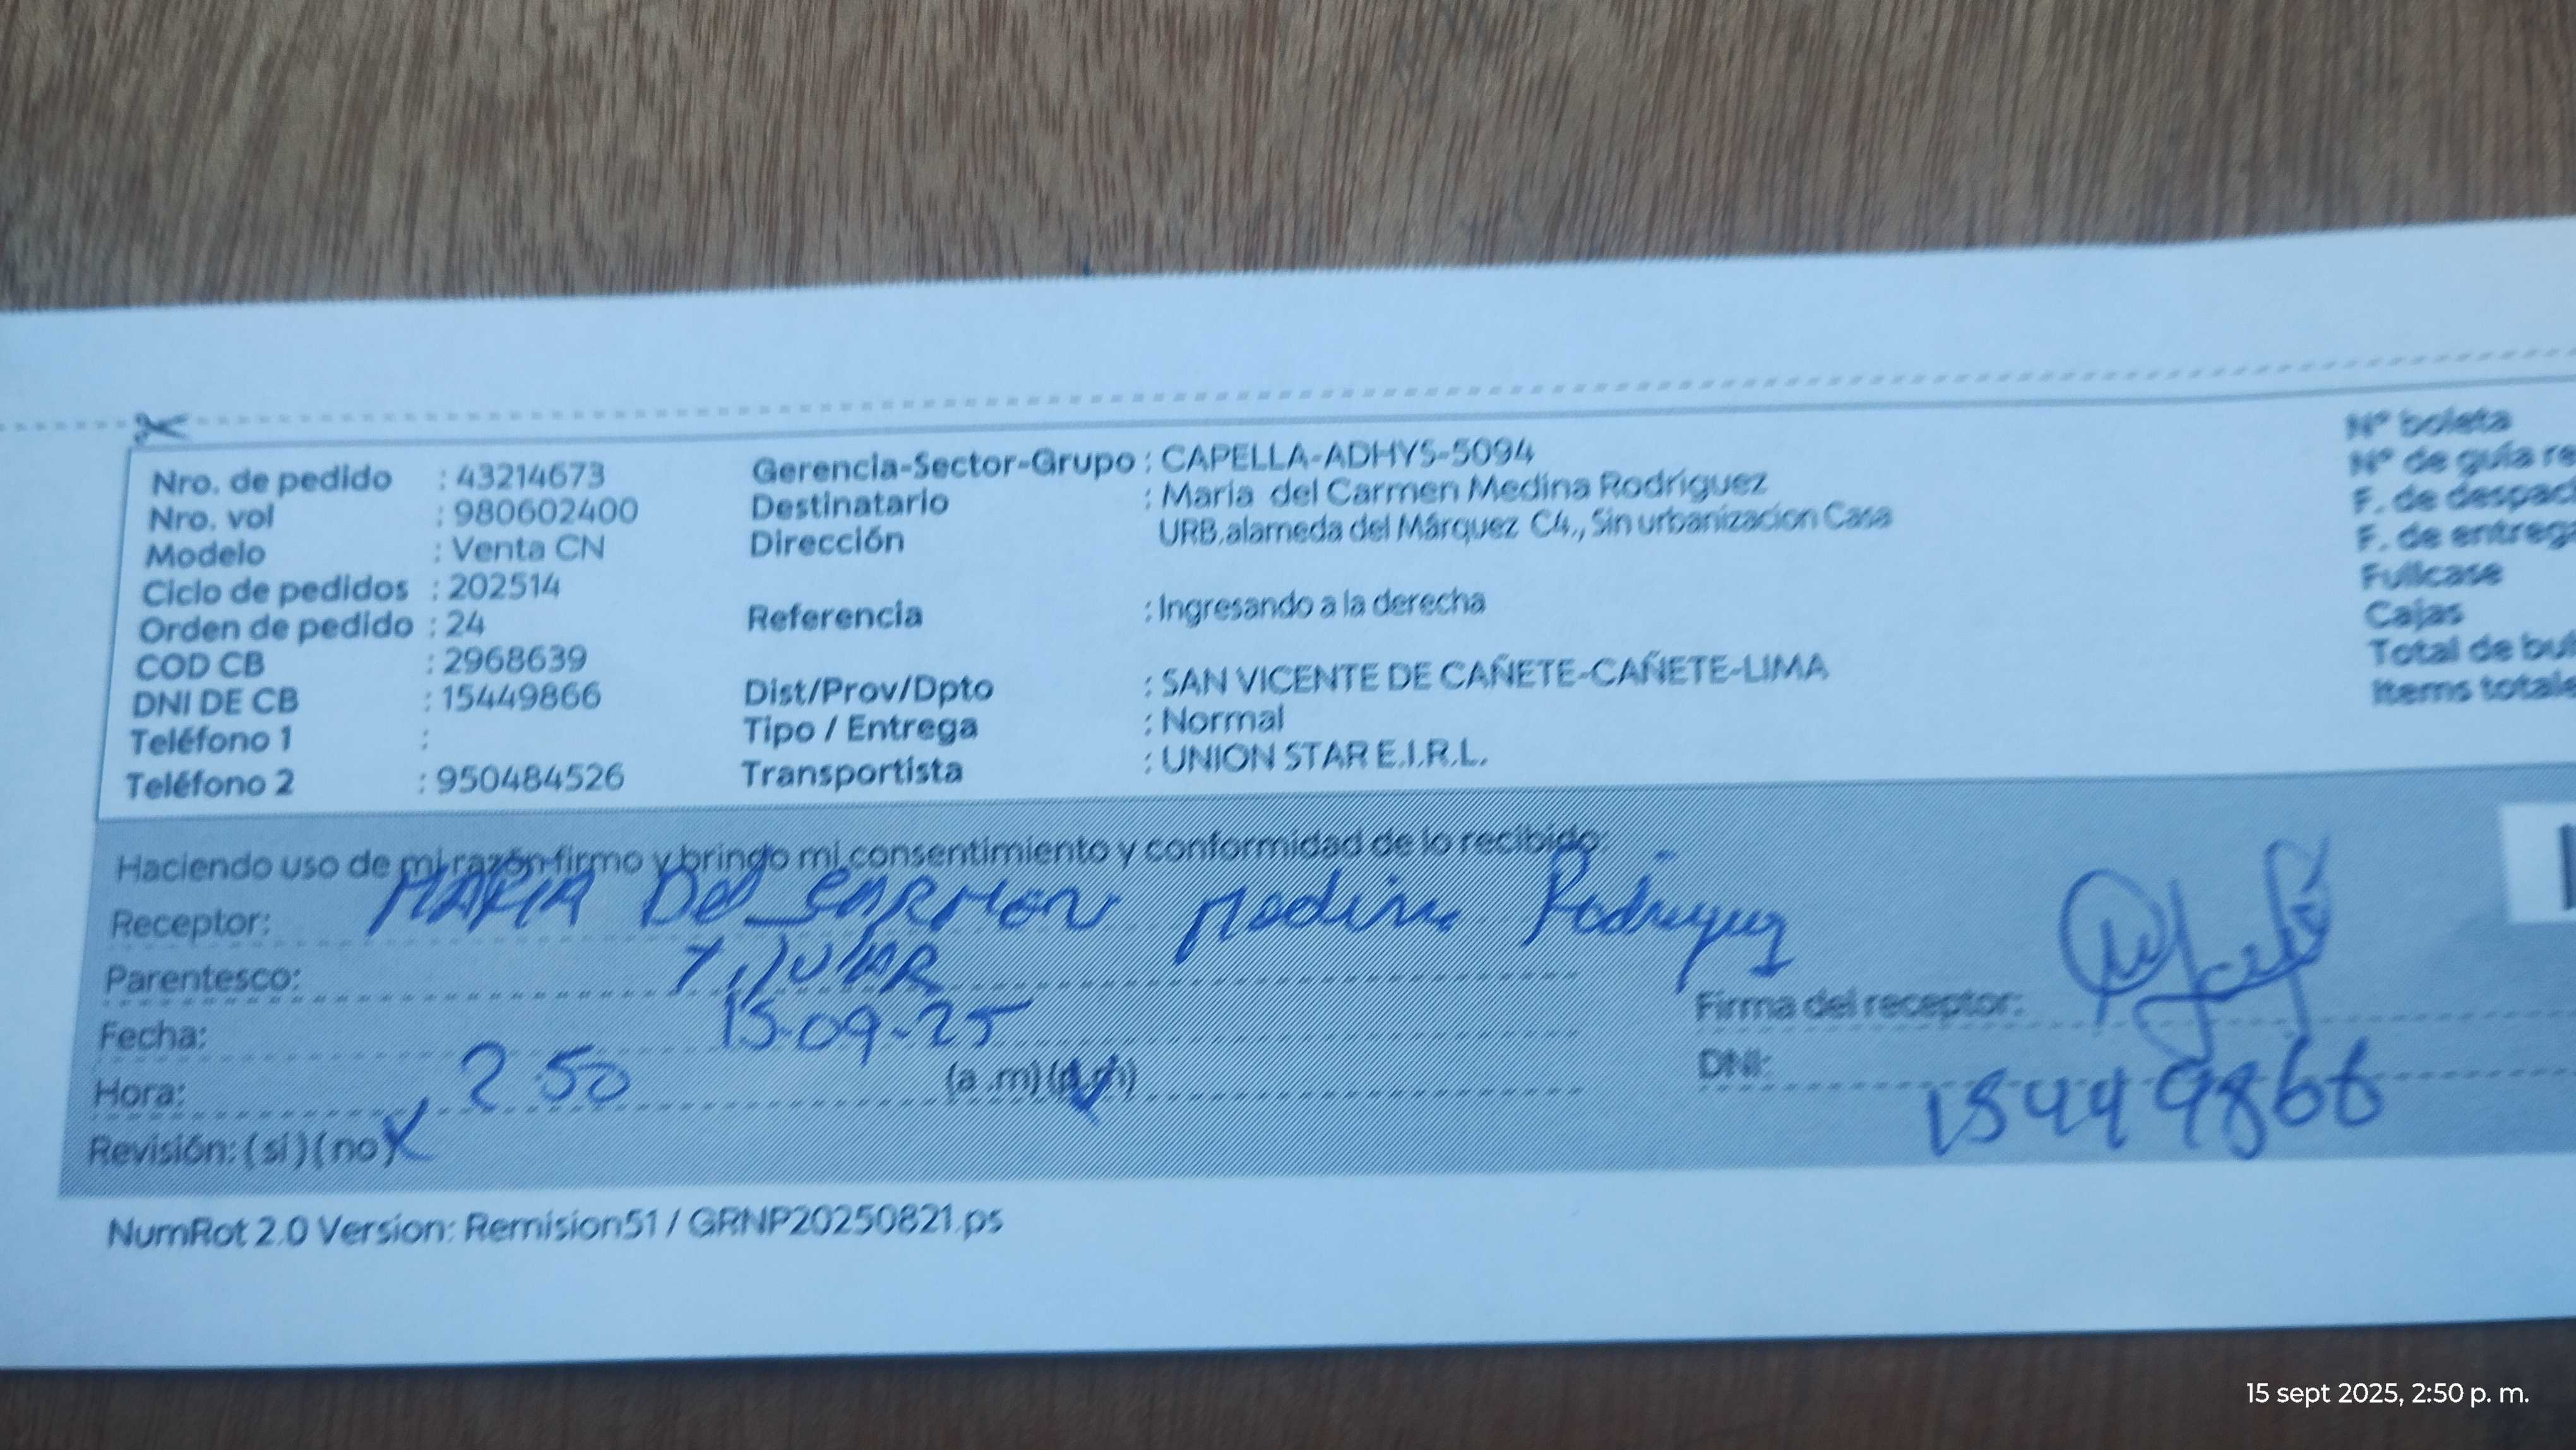 Nro. de pedido : 43214673
Nro. vol : 980602400
Modelo : Venta CN
Ciclo de pedidos : 202514
Orden de pedido : 24
COD CB : 2968639
DNI DE CB : 15449866
Teléfono 1 :
Teléfono 2 : 950484526
Gerencia-Sector-Grupo : CAPELLA-ADHYS-5094
Destinatario : María del Carmen Medina Rodríguez
Dirección URB.alameda del Márquez C4., Sin urbanizacion Casa
Referencia : Ingresando a la derecha
Dist/Prov/Dpto : SAN VICENTE DE CAÑETE-CAÑETE-LIMA
Tipo / Entrega : Normal
Transportista : UNION STAR E.I.R.L.
Nº boleta
Nº de guía re
F. de despac
F. de entreg
Fullcase
Cajas
Total de bul
Items totale
Haciendo uso de mi razón firmo y bringo mi consentimiento y conformidad de lo recibido:
Receptor: MARIA Del CARMen Medina Rodriguez
Parentesco: TITULAR
Fecha: 15-09-25
Hora: 2 50 (a .m) (p.m)
Revisión: (sí) (no) X
Firma del receptor:
DNI: 15449866
NumRot 2.0 Version: Remision51 / GRNP20250821.ps
15 sept 2025, 2:50 p. m.